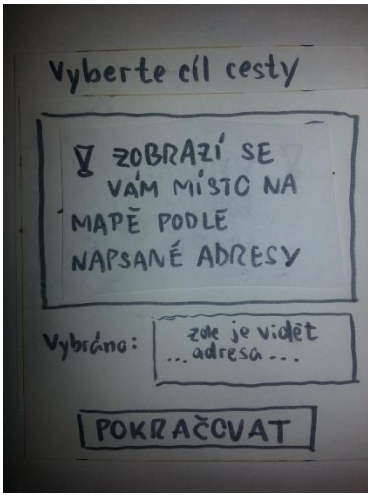 Vyberte cíl cesty
! ZOBRAZÍ SE
VÁM MÍSTO NA
MAPĚ PODLE
NAPSANÉ ADRESY
Vybráno:
zde je vidět
...adresa...
POKRAČOVAT